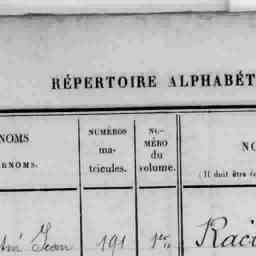 RÉPERTOIRE ALPHABÉT
NOMS
ÉRNOMS.
NUMÉROS
ma-
tricules.
NU-
MÉRO
du
volume.
NO
(Il doit être é
Jean 191 1er Raci